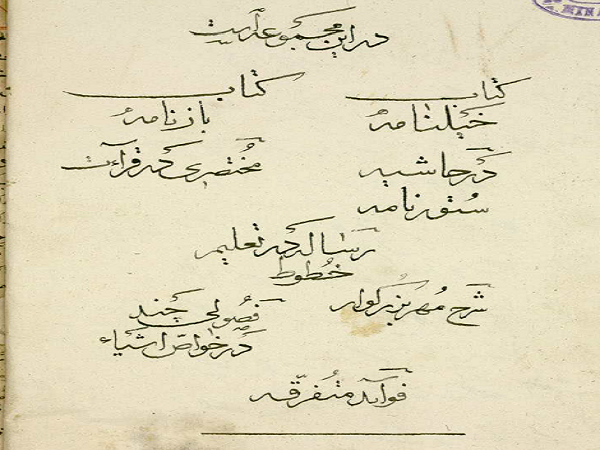 در این مجموعه است
کتاب
خیلنامه
کتاب
بازنامه
در حاشیه
ستورنامه
مختصری در قرآت
رساله در تعلیم
خطوط
شرح مهر بزرکوار
فصولی چند
در خواص اشیاء
فوآید متفرقه